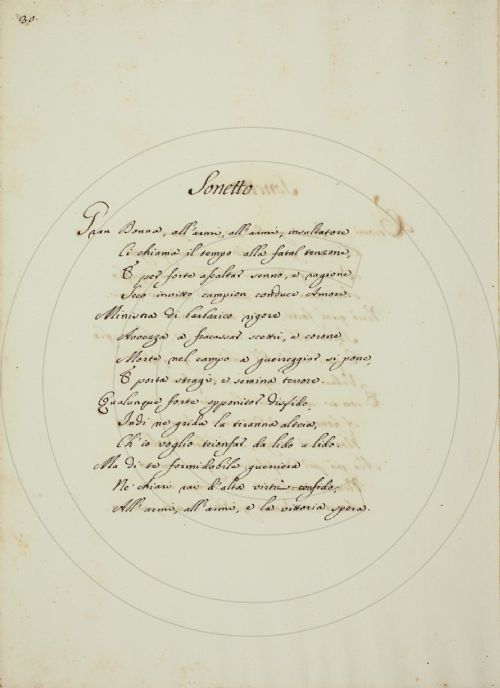 30.
Sonetto
Gran Donna, all'armi, all'armi, insultatore
Ci chiama il tempo alla fatal tenzone,
E per forte assaltar senno, e ragione
Seco invitto campion conduce Amore.
Ministra di barbarico rigore
Avvezza a fracassar scettri, e corone
Morte nel campo a guerreggiar si pone,
E porta strage, e semina terrore.
Qualunque forte opponitor disfido,
Indi ne grida la tiranna altera,
Ch'io voglio trionfar da lido a lido.
Ma di te formidabile guerriera
Ne' chiari rai d'alta virtù confido,
All'armi, all'armi, e la vittoria spera.